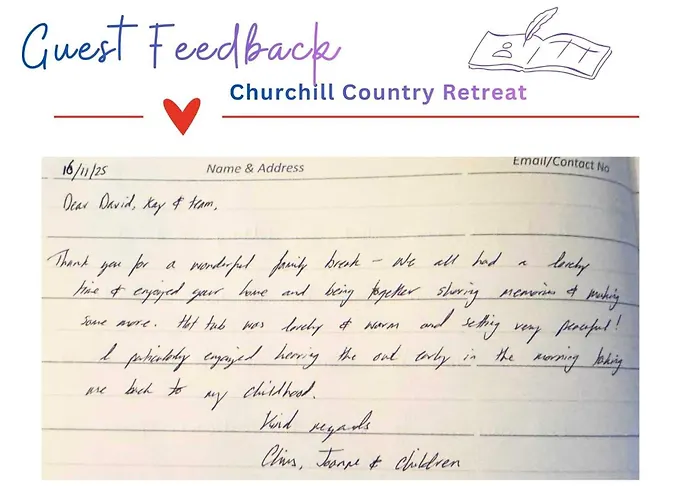 Guest Feedback
Churchill Country Retreat
16/11/25 Name & Address Email/Contact No
Dear David, Kay & team,
Thank you for a wonderful family break – We all had a lovely
time & enjoyed your home and being together sharing memories & making
some more. Hot tub was lovely & warm and setting very peaceful!
I particularly enjoyed hearing the owl early in the morning taking
me back to my childhood.
Kind regards
Chris, Joanne & children